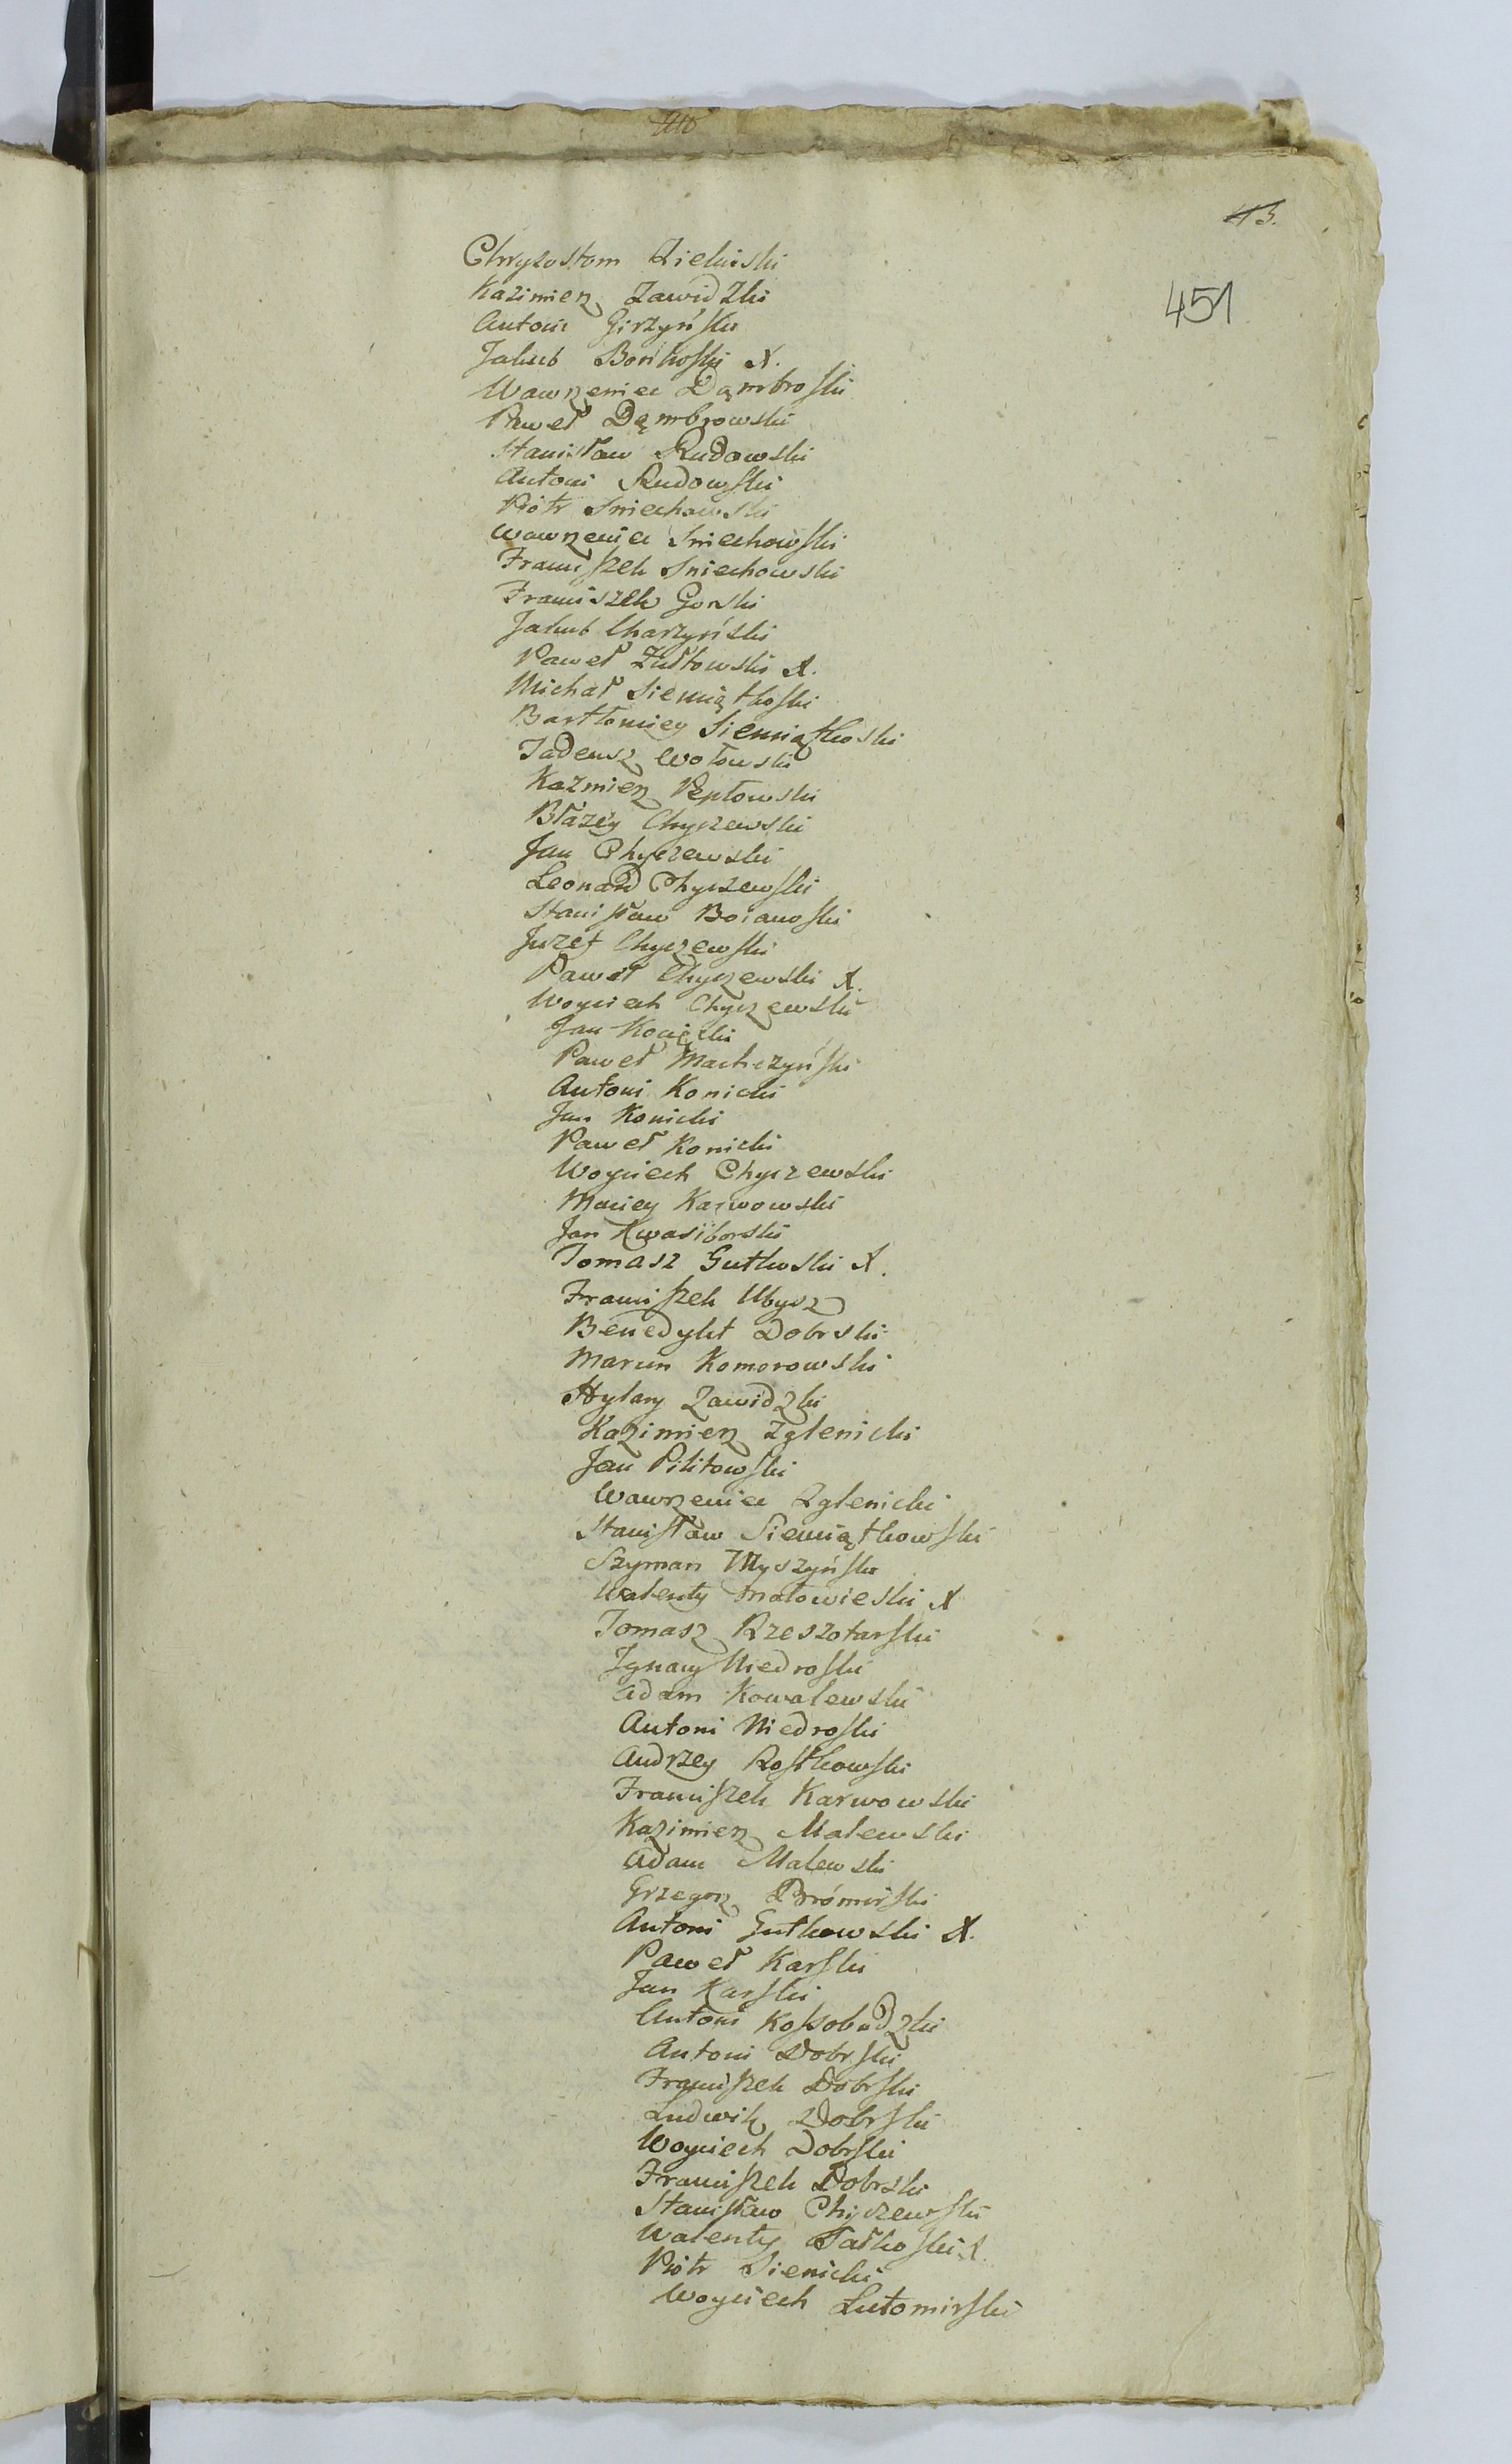 43.
451
Chryzostom Zielinski
Kazimierz Zawidzki
Antoni Girzyński
Jakub Bońkoski X.
Wawrzeniec Dąmbroski
Paweł Dąmbrowski
Stanisław Rudowski
Antoni Rudowski
Piotr Sniechowski
Wawrzeniec Sniechowski
Franciszek Sniechowski
Franciszek Gorski
Jakub Charzyński
Paweł Żułtowski X.
Michał Siemiątkoski
Bartłomiey Siemiątkoski
Tadeusz Wołowski
Kazmierz Peptowski
Błażey Chyczewski
Jan Chyczewski
Leonard Chyczewski
Stanisław Boianoski
Juzef Chyczewski
Paweł Chyczewski X.
Woyciech Chyczewski
Jan Konicki
Paweł Machczyński
Antoni Konicki
Jan Konicki
Paweł Konicki
Woyciech Chyczewski
Maciey Karwowski
Jan Kwasiborski
Tomasz Gutkoski X.
Franciszek Ubysz
Benedykt Dobrski
Marcin Komorowski
Hylary Zawidzki
Kazimierz Zglenicki
Jan Pilitowski
Wawrzeniec Zglenicki
Stanisław Siemiątkowski
Szyman Myszyński
Walenty Małowieski X
Tomasz Rzeszotarski
Ignacy Niedroski
Adam Kowalewski
Antoni Niedroski
Andrzey Rostkowski
Franciszek Karwowski
Kazimierz Malewski
Adam Malewski
Grzegorz Bromirski
Antoni Gutkowski X.
Paweł Karski
Jan Karski
Antoni Kossobudzki
Antoni Dobrski
Franciszek Dobrski
Ludwik Dobrski
Woyciech Dobrski
Franciszek Dobrski
Stanisław Chyczewski
Walenty X.
Piotr Sienicki
Woyciech Lutomirski